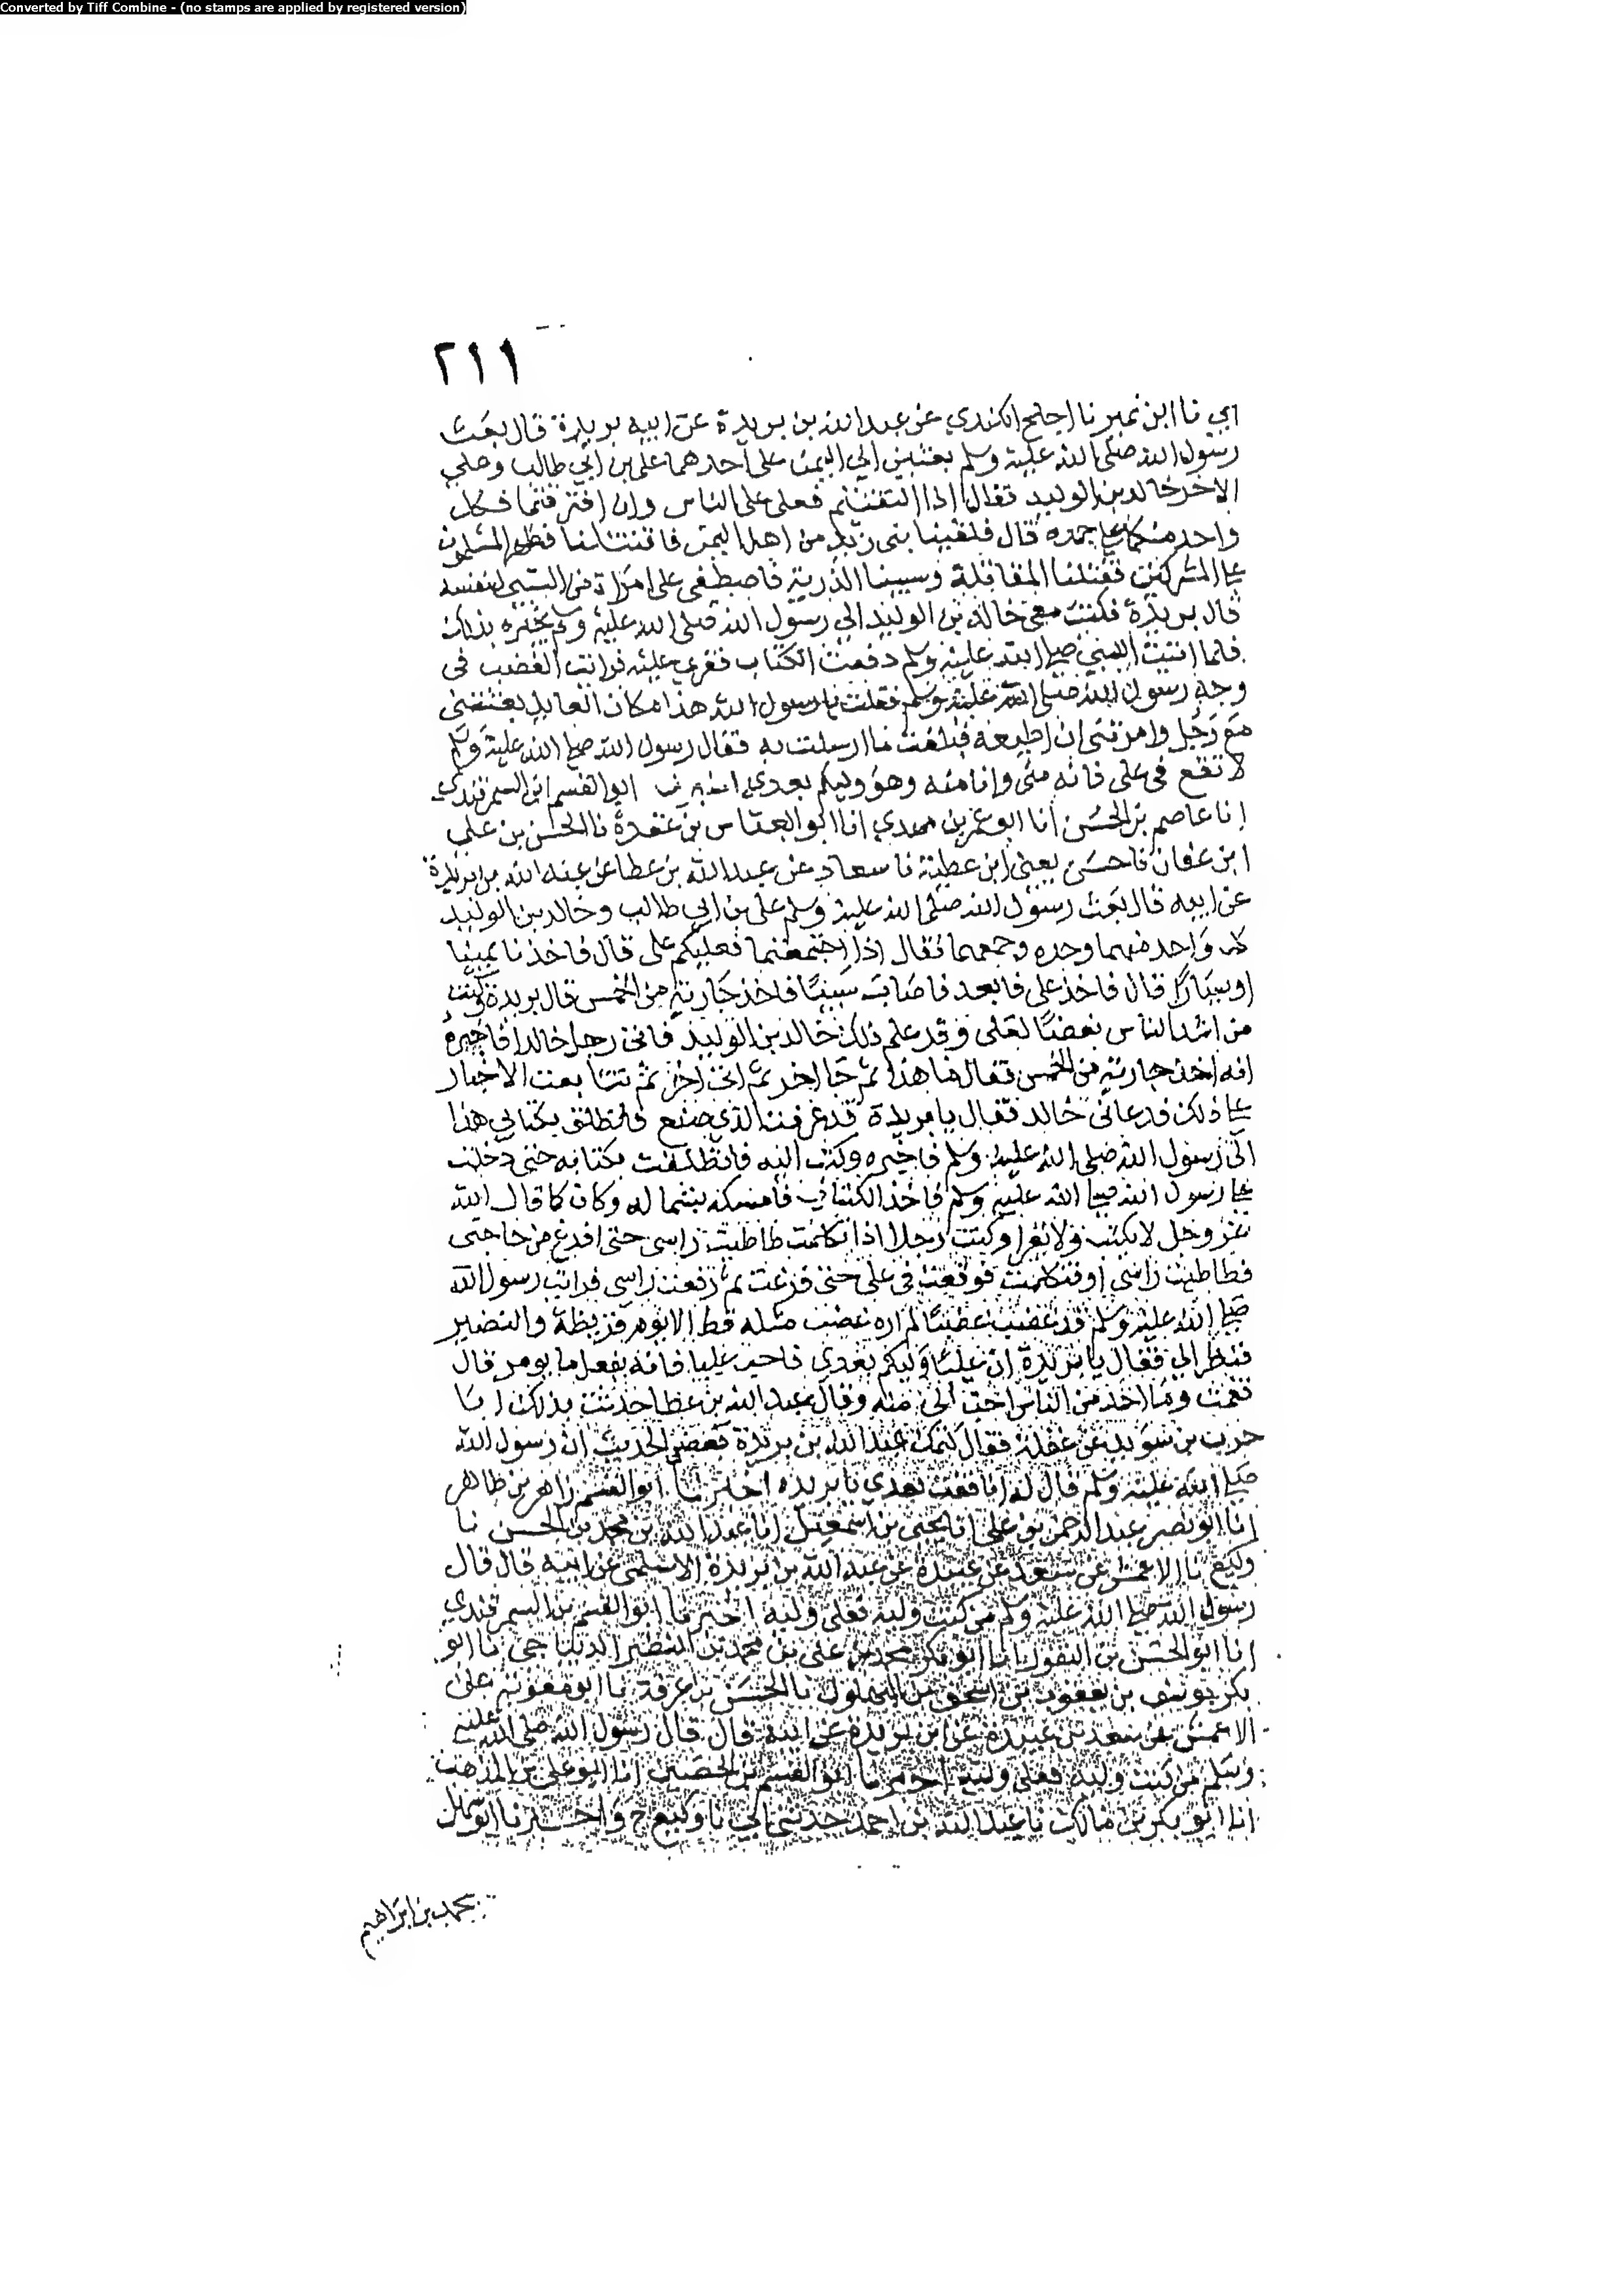 Converted by Tiff Combine - (no stamps are applied by registered version)
٢١١
ابي نا ابن نمير نا اجلح الكندي عن عبد الله بن بريدة عن ابيه بريدة قال بعث
رسول الله صلى الله عليه وسلم بعثين الى اليمن على احدهما علي بن ابي طالب وعلى
الاخر خالد بن الوليد فقال اذا التقيتم فعلي على الناس وان افترقتما فكل
واحد منكما على جنده قال فلقينا بني زبيد من اهل اليمن فاقتتلنا فظهر المسلمون
على المشركين فقتلنا المقاتلة وسبينا الذرية فاصطفى علي امراة من السبي لنفسه
قال بريدة فكتب معي خالد بن الوليد الى رسول الله صلى الله عليه وسلم يخبره بذلك
فلما اتيت النبي صلى الله عليه وسلم دفعت الكتاب فقرئ عليه فرايت الغضب في
وجه رسول الله صلى الله عليه وسلم فقلت يا رسول الله هذا مكان العايذ بعثتني
مع رجل وامرتني ان اطيعه فبلغت ما ارسلت به فقال رسول الله صلى الله عليه وسلم
لا تقع في علي فانه مني وانا منه وهو وليكم بعدي اخبرنا ابو القسم ابن السمرقندي
انا عاصم بن الحسن انا ابو عمر بن مهدي انا ابو العباس بن عقدة نا الحسن بن علي
ابن عفان نا حسن يعني ابن عطية نا سعاد عن عبد الله بن عطا عن عبد الله بن بريدة
عن ابيه قال بعث رسول الله صلى الله عليه وسلم علي بن ابي طالب وخالد بن الوليد
كل واحد منهما وحده وجمعهما فقال اذا اجتمعتما فعليكم علي قال فاخذنا يمينا
او يسارا قال فاخذ علي فابعد فاصاب سبيا فاخذ جارية من الخمس قال بريدة وكنت
من اشد الناس بغضا لعلي وقد علم ذلك خالد بن الوليد فاتى رجل خالدا فاخبره
انه اخذ جارية من الخمس فقال ما هذا ثم جا اخر ثم اتى اخر ثم تتابعت الاخبار
على ذلك فدعاني خالد فقال يا بريدة قد عرفت الذي صنع فانطلق بكتابي هذا
الى رسول الله صلى الله عليه وسلم فاخبره وكتب اليه فانطلقت بكتابه حتى دخلت
على رسول الله صلى الله عليه وسلم فاخذ الكتاب فامسكه بشماله وكان كما قال الله
عز وجل لا يكتب ولا يقرا وكنت رجلا اذا تكلمت طاطيت راسي حتى افرغ من حاجتي
فطاطيت راسي او فتكلمت فوقعت في علي حتى فرغت ثم رفعت راسي فرايت رسول الله
صلى الله عليه وسلم قد غضب غضبا لم اره غضب مثله قط الا يوم قريظة والنضير
فنظر الي فقال يا بريدة ان عليا وليكم بعدي فاحب عليا فانه يفعل ما يومر قال
فقمت وما احد من الناس احب الي منه وقال عبد الله بن عطا حدثت بذلك ابا
حرب بن سويد بن غفلة فقال كتمك عبد الله بن بريدة بعض الحديث ان رسول الله
صلى الله عليه وسلم قال له انافقت بعدي يا بريدة اخبرنا ابو القسم زاهر بن طاهر
انا ابو نصر عبد الرحمن بن علي انا يحيى بن اسمعيل انا عبد الله بن محمد بن الحسن نا
وكيع نا الاعمش عن سعد بن عبيدة عن عبد الله بن بريدة الاسلمي عن ابيه قال قال
رسول الله صلى الله عليه وسلم من كنت وليه فعلي وليه اخبرنا ابو القسم بن السمرقندي
انا ابو الحسين بن النقور انا ابو بكر محمد بن علي بن محمد بن النضر الديباجي نا ابو
بكر يوسف بن يعقوب بن اسحق بن البهلول نا الحسن بن عرفة نا ابو معوية على
الاعمش عن سعد بن عبيدة عن ابن بريدة عن ابيه قال قال رسول الله صلى الله عليه
وسلم من كنت وليه فعلي وليه اخبرنا ابو القسم بن الحصين انا ابو علي بن المذهب
انا ابو بكر بن مالك نا عبد الله بن احمد حدثني ابي نا وكيع ح واخبرنا ابو سهل
محمد بن ابراهيم